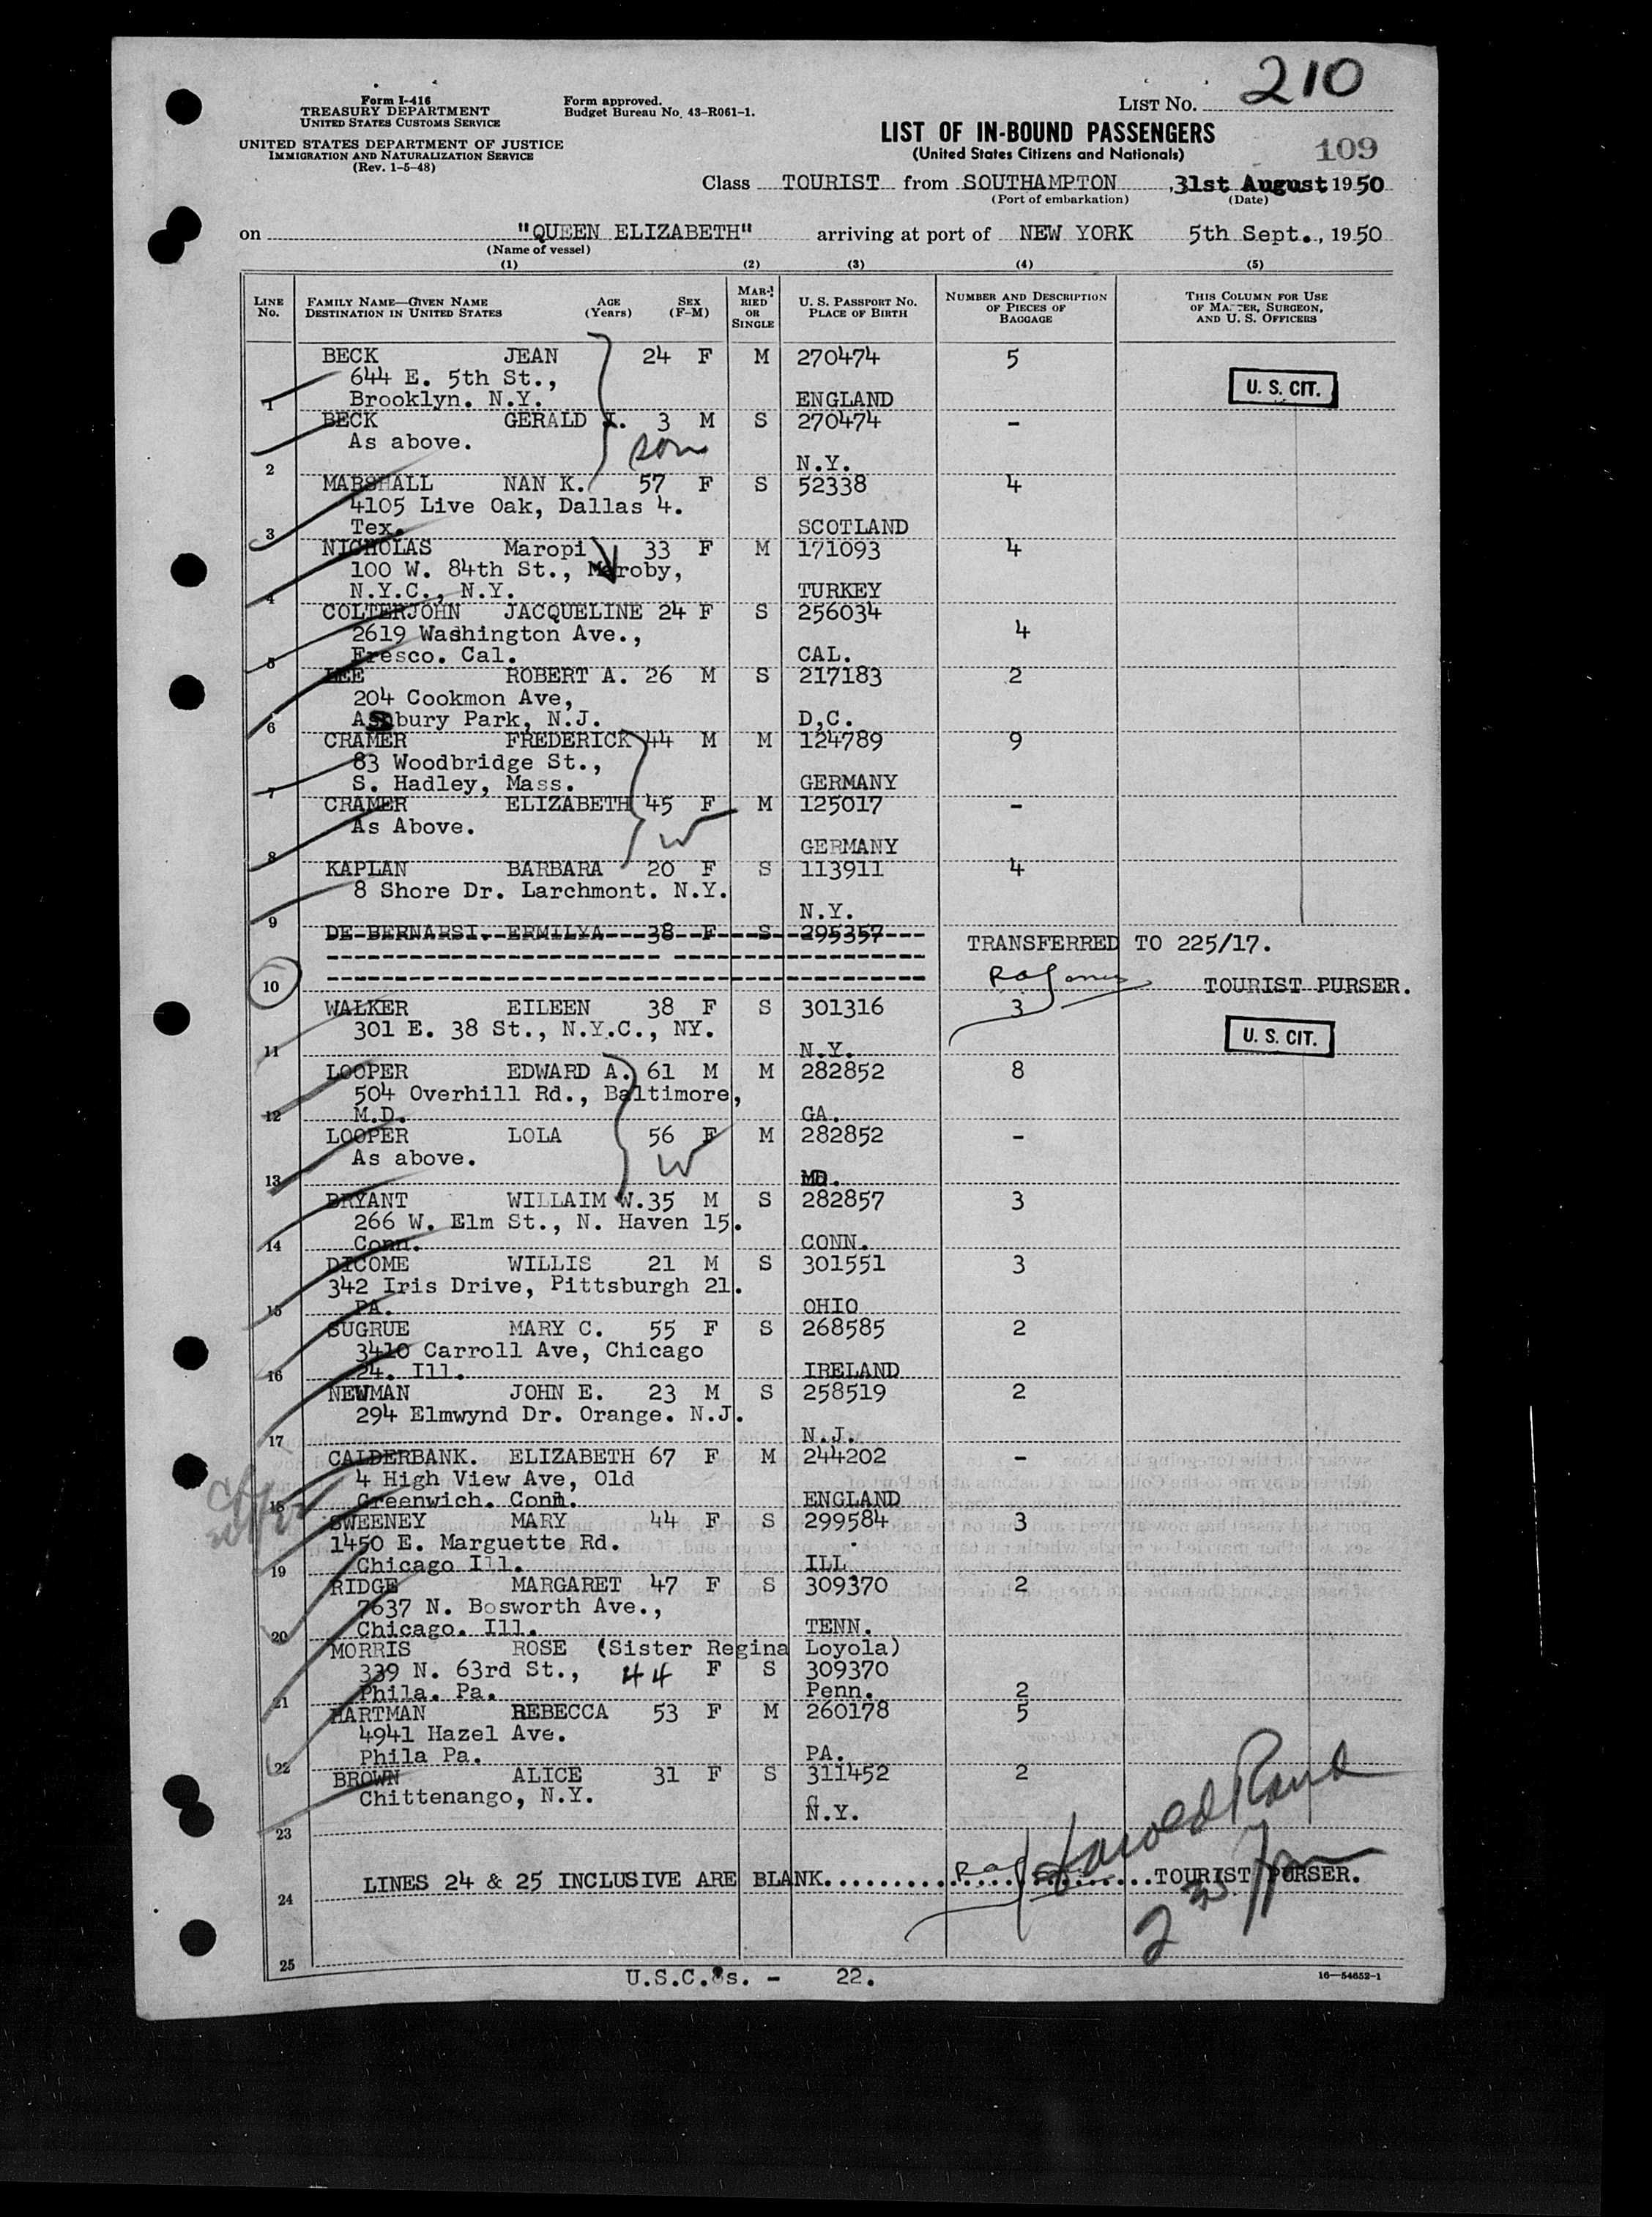 210
Form I-416
TREASURY DEPARTMENT
UNITED STATES CUSTOMS SERVICE
Form approved.
Budget Bureau No. 43-R061-1.
LIST NO.
UNITED STATES DEPARTMENT OF JUSTICE
IMMIGRATION AND NATURALIZATION SERVICE
(Rev. 1-5-48)
LIST OF IN-BOUND PASSENGERS
(United States Citizens and Nationals)
109
Class TOURIST from SOUTHAMPTON, 31st August 1950
(Port of embarkation) (Date)
on "QUEEN ELIZABETH" arriving at port of NEW YORK 5th Sept., 1950
(Name of vessel)
(1) (2) (3) (4) (5)
LINE NO. FAMILY NAME—GIVEN NAME DESTINATION IN UNITED STATES AGE (Years) SEX (F-M) MARRIED OR SINGLE U. S. PASSPORT NO. PLACE OF BIRTH NUMBER AND DESCRIPTION OF PIECES OF BAGGAGE THIS COLUMN FOR USE OF MASTER, SURGEON, AND U. S. OFFICERS
BECK JEAN 24 F M 270474 5
644 E. 5th St., U. S. CIT.
1 Brooklyn. N.Y. ENGLAND
BECK GERALD I. 3 M S 270474 -
As above. son
2 N.Y.
MARSHALL NAN K. 57 F S 52338 4
4105 Live Oak, Dallas 4.
3 Tex. SCOTLAND
NICHOLAS Maropi 33 F M 171093 4
100 W. 84th St., Maroby,
4 N.Y.C., N.Y. TURKEY
COLTERJOHN JACQUELINE 24 F S 256034
2619 Washington Ave., 4
5 Fresco. Cal. CAL.
LEE ROBERT A. 26 M S 217183 2
204 Cookmon Ave,
6 Asbury Park, N.J. D,C.
CRAMER FREDERICK 44 M M 124789 9
83 Woodbridge St.,
7 S. Hadley, Mass. GERMANY
CRAMER ELIZABETH 45 F M 125017 -
As Above. W
8 GERMANY
KAPLAN BARBARA 20 F S 113911 4
8 Shore Dr. Larchmont. N.Y.
9 N.Y.
DE BERNARSI. ERMILYA 38 F S 295357
TRANSFERRED TO 225/17.
10 TOURIST PURSER.
WALKER EILEEN 38 F S 301316 3
301 E. 38 St., N.Y.C., NY. U. S. CIT.
11 N.Y.
LOOPER EDWARD A. 61 M M 282852 8
504 Overhill Rd., Baltimore,
12 M.D. GA.
LOOPER LOLA 56 F M 282852 -
As above. W
13 MD.
BRYANT WILLAIM W. 35 M S 282857 3
266 W. Elm St., N. Haven 15.
14 Conn. CONN.
DICOME WILLIS 21 M S 301551 3
342 Iris Drive, Pittsburgh 21.
15 PA. OHIO
SUGRUE MARY C. 55 F S 268585 2
3410 Carroll Ave, Chicago
16 24. Ill. IRELAND
NEWMAN JOHN E. 23 M S 258519 2
294 Elmwynd Dr. Orange. N.J.
17 N.J.
CALDERBANK. ELIZABETH 67 F M 244202 -
4 High View Ave, Old
18 Greenwich. Conn. ENGLAND
SWEENEY MARY 44 F S 299584 3
1450 E. Marguette Rd.
19 Chicago Ill. ILL.
RIDGE MARGARET 47 F S 309370 2
7637 N. Bosworth Ave.,
20 Chicago. Ill. TENN.
MORRIS ROSE (Sister Regina Loyola)
339 N. 63rd St., 44 F S 309370
21 Phila. Pa. Penn. 2
HARTMAN REBECCA 53 F M 260178 5
4941 Hazel Ave.
22 Phila Pa. PA.
BROWN ALICE 31 F S 311452 2
Chittenango, N.Y. N.Y.
23
24 LINES 24 & 25 INCLUSIVE ARE BLANK. TOURIST PURSER.
25
U.S.C.'s. - 22.
16—54652-1